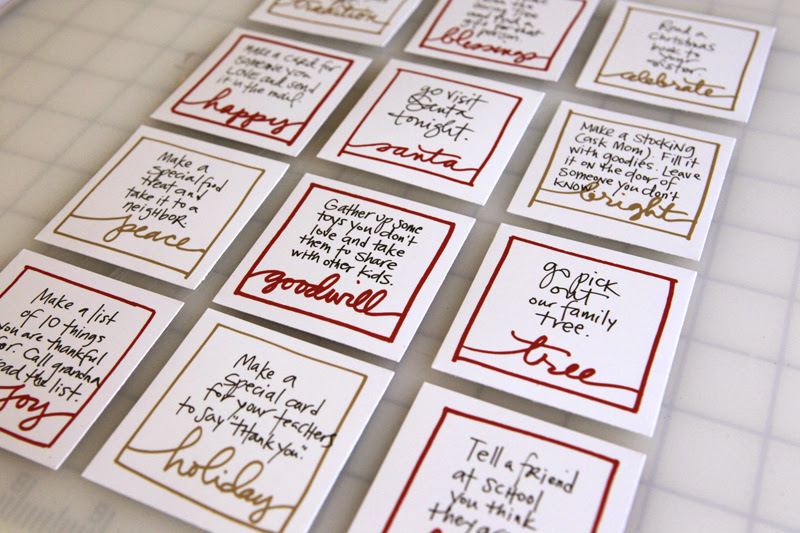 tradition
blessings
Read a
Christmas
book to
your
sister
celebrate
Make a card for
someone you
LOVE and send
it in the mail.
happy
go visit
Santa
tonight.
santa
Make a Stocking
(ask Mom). Fill it
with goodies. Leave
it on the door of
someone you don't
know.
bright
Make a
special food
treat and
take it to a
neighbor.
peace
Gather up some
toys you don't
love and take
them to share
with other kids.
goodwill
go pick
out
our family
tree.
tree
Make a list
of 10 things
you are thankful
for. Call grandma
read the list.
joy
Make a
special card
for your teachers
to say "thank you".
holiday
Tell a friend
at school
you think